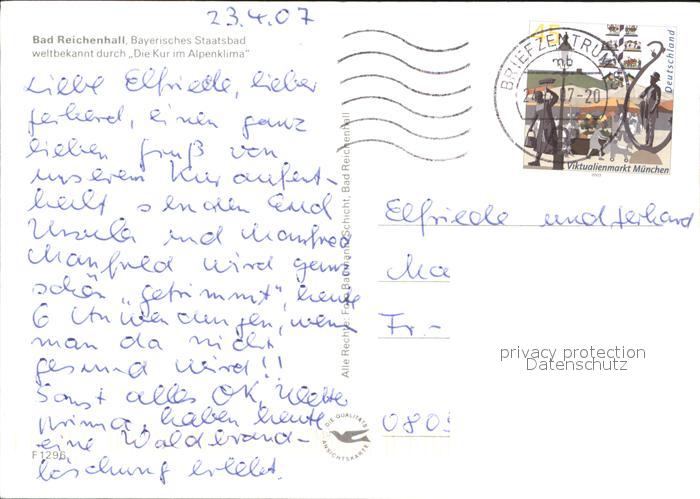 23.4.07
Bad Reichenhall, Bayerisches Staatsbad
weltbekannt durch „Die Kur im Alpenklima"
Liebe Elfriede, lieber
Gerhard, einen ganz
lieben Gruß von
unserem Kuraufent-
halt senden Euch
Ursula und Manfred
Manfred wird ganz
schön „getrimmt", heute
6 Anwendungen, wenn
man da nicht
gesund wird!!
Sonst alles OK, Wetter
prima, haben heute
eine Waldbrand-
löschung erlebt.
F1296
Alle Rechte: Foto Baumann-Schicht, Bad Reichenhall
DIE QUALITÄTS
ANSICHTSKARTE
BRIEFZENTRUM
45
Deutschland
Viktualienmarkt München
2003
Elfriede und Gerhard
Ma
Fr.-
privacy protection
Datenschutz
0809